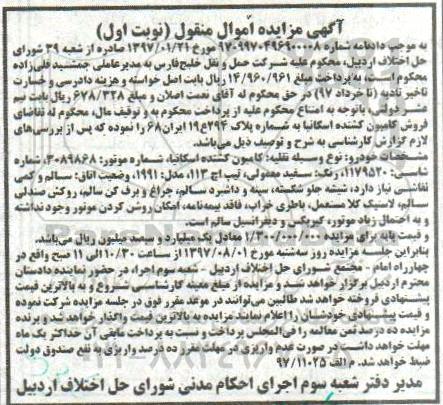 آگهی مزایده اموال منقول (نوبت اول)
به موجب دادنامه شماره ۹۷۰۹۹۷۰۴۹۶۹۰۰۰۰۸ مورخ ۱۳۹۷/۰۱/۲۱ صادره از شعبه ۳۹ شورای
حل اختلاف اردبیل، محکوم علیه شرکت حمل و نقل خلیج‌فارس به مدیرعاملی جمشید قلی‌زاده
محکوم است، به پرداخت مبلغ ۱۴/۹۶۰/۹۶۱ ریال بابت اصل خواسته و هزینه دادرسی و خسارت
تاخیر تادیه (تا خرداد ۹۷) در حق محکوم له آقای نعمت اصلان و مبلغ ۶۷۸/۳۲۸ ریال بابت نیم
عشر دولتی باتوجه به امتناع محکوم علیه از پرداخت محکوم به و توقیف مال، محکوم له تقاضای
فروش کامیون کشنده اسکانیا به شماره پلاک ۲۹۴ع۱۹ ایران ۶۸ را نموده که پس از بررسی‌های
لازم گزارش کارشناسی به شرح و توصیف ذیل می‌باشد.
مشخصات خودرو: نوع وسیله نقلیه: کامیون کشنده اسکانیا، شماره موتور: ۳۰۸۹۸۶۸، شماره
شاسی: ۱۱۷۹۵۲۰، رنگ: سفید معمولی، تیپ اچ ۱۱۳، مدل: ۱۹۹۱، وضعیت اتاق: سالم و کمی
نقاشی نیاز دارد، شیشه جلو شکسته، سینه و داشبرد سالم، چراغ و برف کن سالم، روکش صندلی
سالم، لاستیک کلا مستعمل، باطری خراب، فاقد بیمه‌نامه، امکان روشن کردن موتور وجود نداشته
و به احتمال زیاد موتور، گیربکس و دیفرانسیل سالم است.
و قیمت پایه برای مزایده ۱/۳۰۰/۰۰۰/۰۰۰ معادل یک میلیارد و سیصد میلیون ریال می‌باشد.
بنابراین جلسه مزایده روز سه‌شنبه مورخ ۱۳۹۷/۰۸/۰۱ از ساعت ۱۰/۳۰ الی ۱۱ صبح واقع در
چهارراه امام - مجتمع شورای حل اختلاف اردبیل - شعبه سوم اجرا، در حضور نماینده دادستان
محترم اردبیل برگزار خواهد شد و مزایده از مبلغ معینه کارشناسی شروع و به بالاترین قیمت
پیشنهادی فروخته خواهد شد طالبین می‌توانند در موعد مقرر فوق در جلسه مزایده شرکت نموده
و قیمت پیشنهادی خودشان را اعلام نمایند مزایده به بالاترین قیمت واگذار خواهد شد و برنده
مزایده ده درصد ثمن معامله را فی‌المجلس پرداخت و نسبت به پرداخت مابقی آن حداکثر یک ماه
مهلت خواهد داشت در صورت عدم واریزی در مهلت مقرر ده درصد واریزی به نفع صندوق دولت
ضبط خواهد شد. م الف ۹۷/۱۱۰۲۵
مدیر دفتر شعبه سوم اجرای احکام مدنی شورای حل اختلاف اردبیل